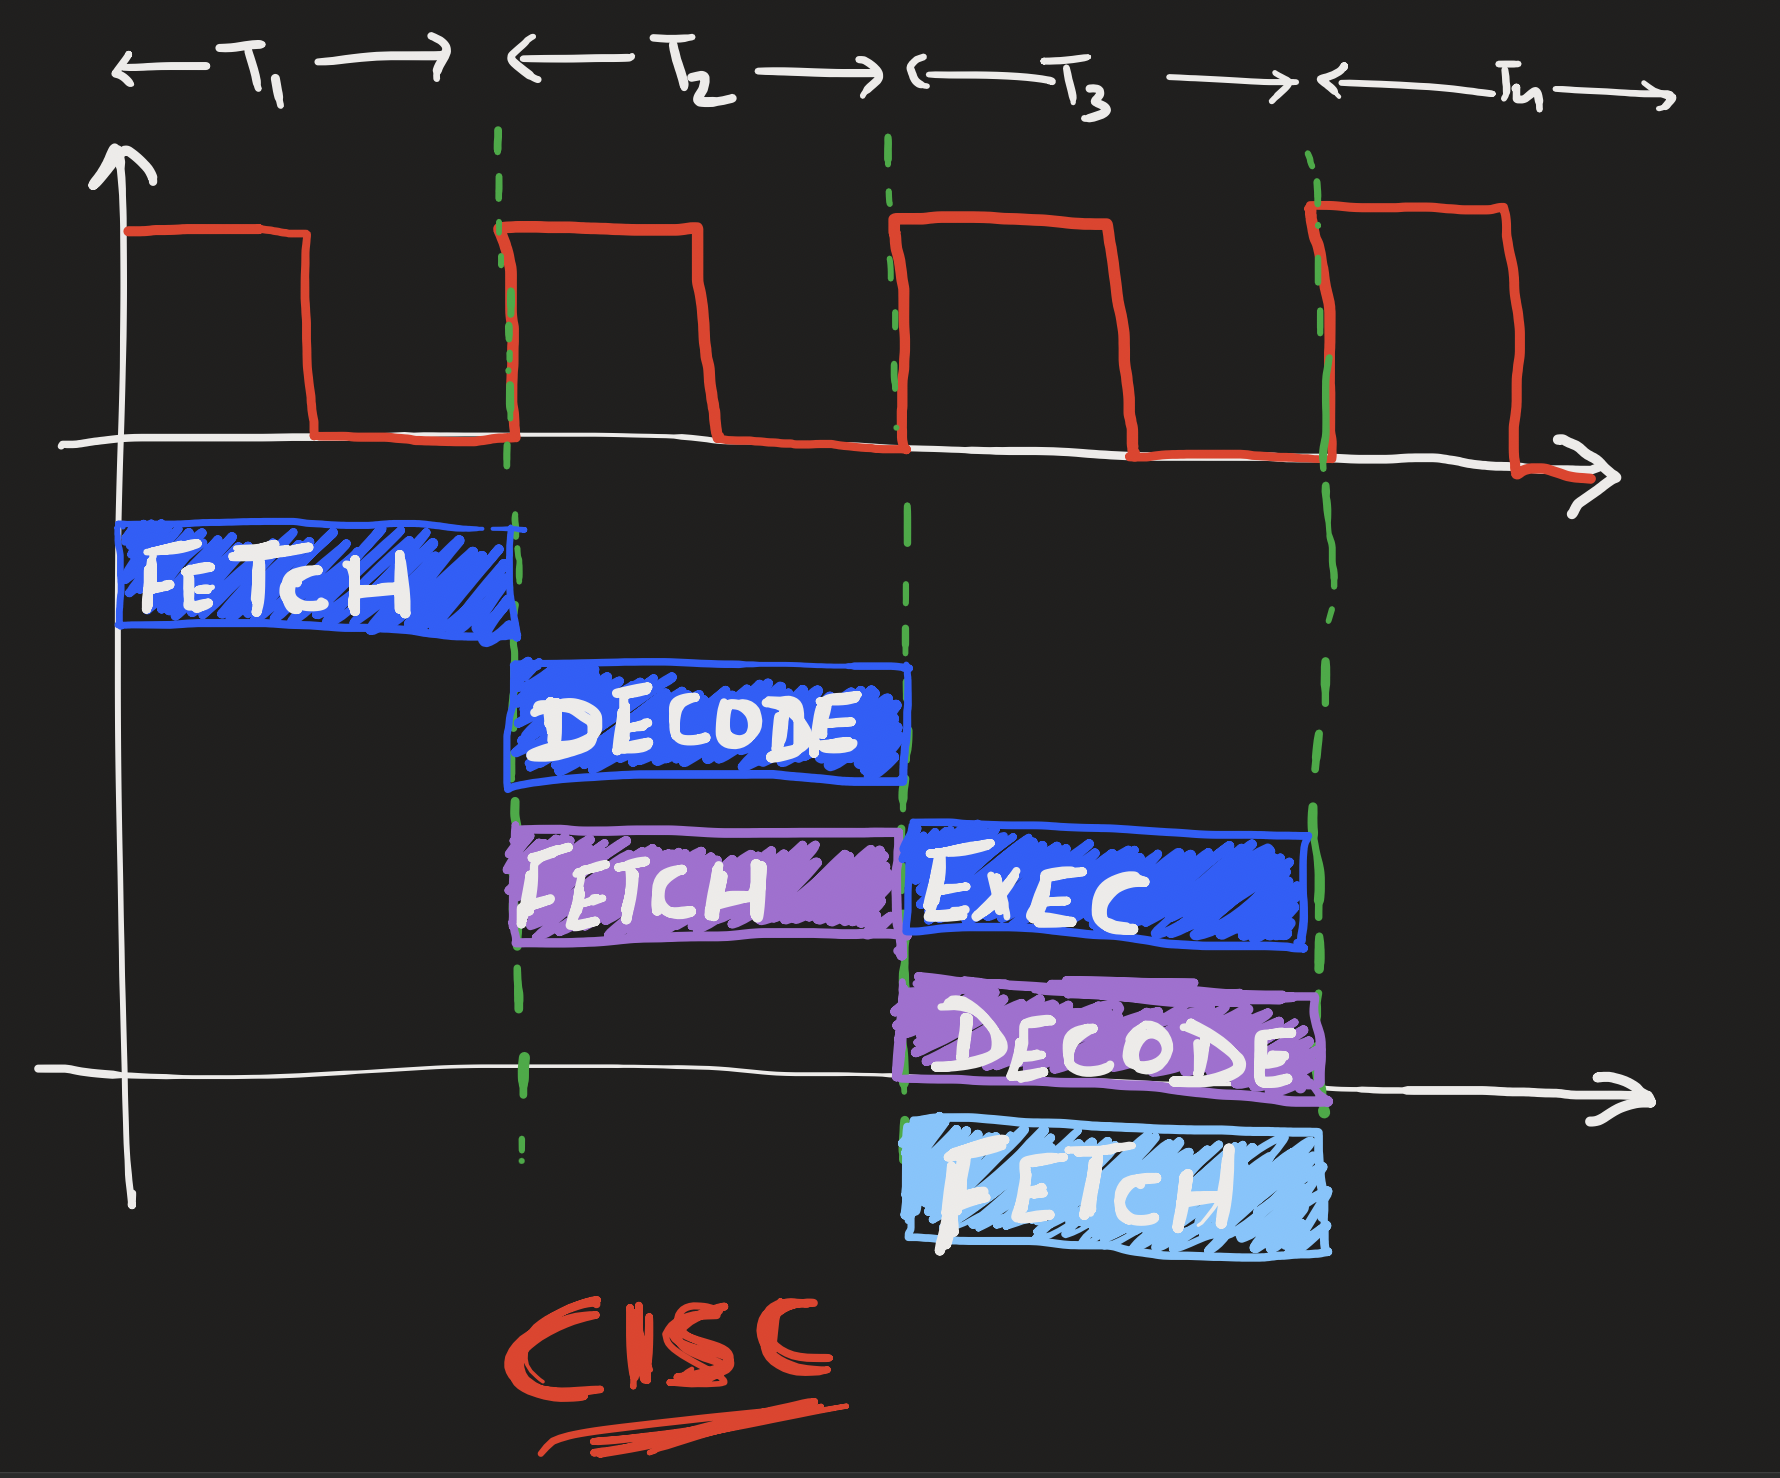 T1 T2 T3 Tn
FETCH
DECODE
FETCH EXEC
DECODE
FETCH
CISC